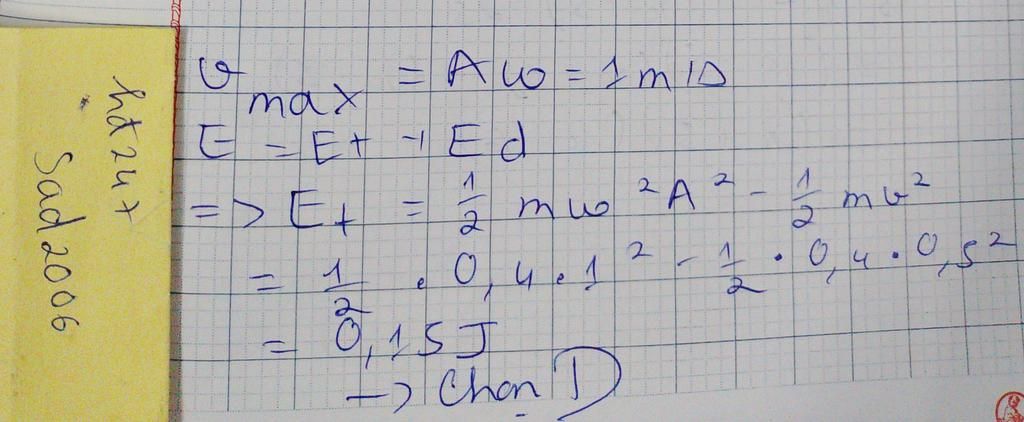 hdz4t
Sad2006
v max = Aω = 1 m/s
E = Et + Ed
=> Et = 1/2 mω²A² - 1/2 mv²
= 1/2 . 0,4.1² - 1/2 . 0,4 . 0,5²
= 0,15J
-> Chọn D